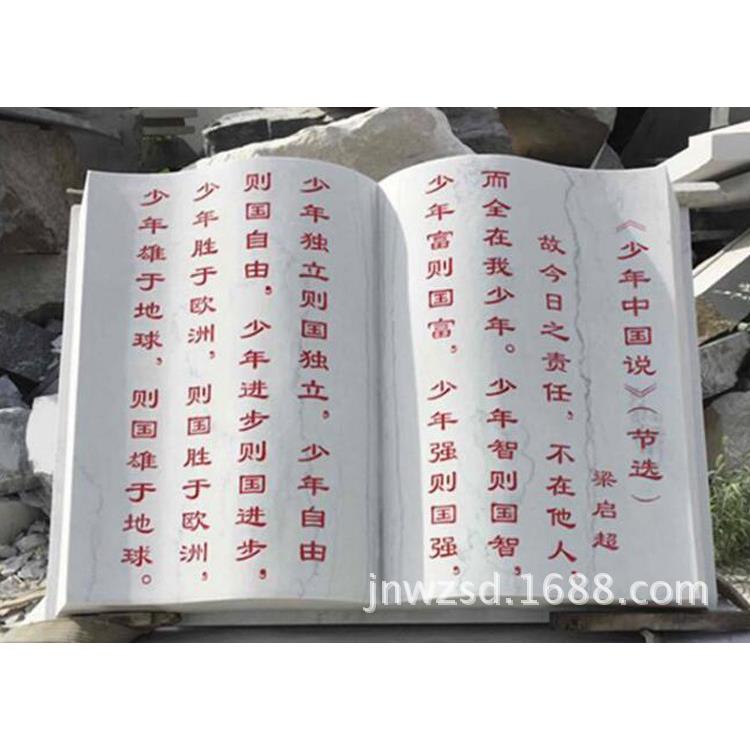 《少年中国说》（节选）
梁启超
故今日之责任，不在他人，
而全在我少年。少年智则国智，
少年富则国富，少年强则国强，
少年独立则国独立，少年自由
则国自由，少年进步则国进步，
少年胜于欧洲，则国胜于欧洲，
少年雄于地球，则国雄于地球。
jnwzsd.1688.com